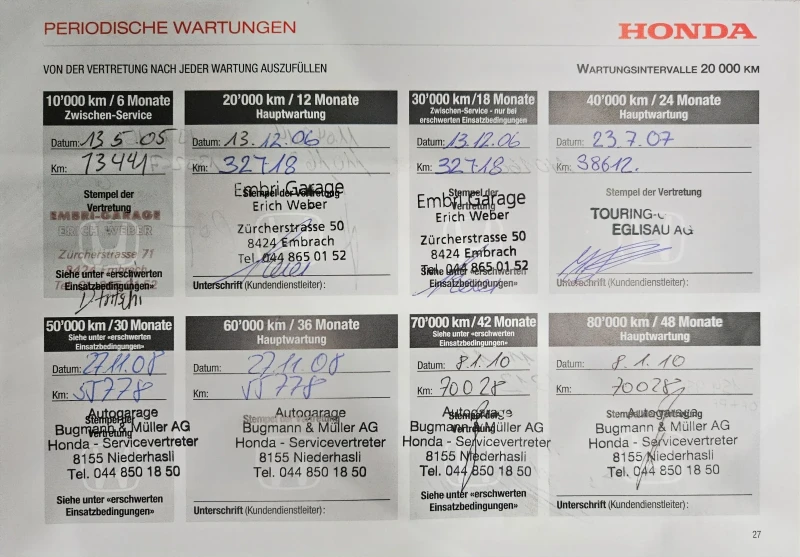 PERIODISCHE WARTUNGEN
HONDA
VON DER VERTRETUNG NACH JEDER WARTUNG AUSZUFÜLLEN
WARTUNGSINTERVALLE 20 000 KM
10'000 km / 6 Monate
Zwischen-Service
Datum: 13 5 05
Km: 13441
Stempel der
Vertretung
EMBRI-GARAGE
ERICH WEBER
Zürcherstrasse 71
8424 Embrach
Siehe unter «erschwerten
Einsatzbedingungen»
20'000 km / 12 Monate
Hauptwartung
Datum: 13. 12. 06
Km: 32718
Stempel der Vertretung
Embri Garage
Erich Weber
Zürcherstrasse 50
8424 Embrach
Tel. 044 865 01 52
Unterschrift (Kundendienstleiter):
30'000 km/18 Monate
Zwischen-Service - nur bei
erschwerten Einsatzbedingungen
Datum: 13.12.06
Km: 32718
Stempel der
Vertretung
Embri Garage
Erich Weber
Zürcherstrasse 50
8424 Embrach
Tel. 044 865 01 52
Siehe unter «erschwerten
Einsatzbedingungen»
40'000 km / 24 Monate
Hauptwartung
Datum: 23.7.07
Km: 38612.
Stempel der Vertretung
TOURING-
EGLISAU AG
Unterschrift (Kundendienstleiter):
50'000 km/30 Monate
Siehe unter «erschwerten
Einsatzbedingungen»
Datum: 27.11.08
Km: 55778
Stempel der
Vertretung
Autogarage
Bugmann & Müller AG
Honda - Servicevertreter
8155 Niederhasli
Tel. 044 850 18 50
Siehe unter «erschwerten
Einsatzbedingungen»
60'000 km / 36 Monate
Hauptwartung
Datum: 27.11.08
Km: 55778
Stempel der Vertretung
Autogarage
Bugmann & Müller AG
Honda - Servicevertreter
8155 Niederhasli
Tel. 044 850 18 50
Unterschrift (Kundendienstleiter):
70'000 km/42 Monate
Siehe unter «erschwerten
Einsatzbedingungen»
Datum: 8.1.10
Km: 70028
Stempel der
Vertretung
Autogarage
Bugmann & Müller AG
Honda - Servicevertreter
8155 Niederhasli
Tel. 044 850 18 50
Siehe unter «erschwerten
Einsatzbedingungen»
80'000 km / 48 Monate
Hauptwartung
Datum: 8.1.10
Km: 70028
Stempel der Vertretung
Autogarage
Bugmann & Müller AG
Honda - Servicevertreter
8155 Niederhasli
Tel. 044 850 18 50
Unterschrift (Kundendienstleiter):
27